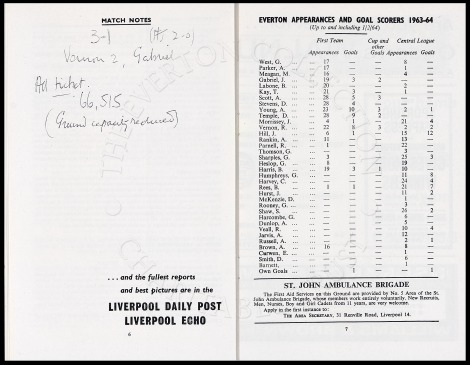 MATCH NOTES
3-1 (Ht. 2-0)
Vernon 2, Gabriel
All ticket.
66,515
(Ground capacity reduced)
...and the fullest reports
and best pictures are in the
LIVERPOOL DAILY POST
LIVERPOOL ECHO
6
EVERTON APPEARANCES AND GOAL SCORERS 1963-64
(Up to and including 1/2/64)
First Team Cup and other Goals Central League
Appearances Goals Appearances Goals
West, G. ... 17 — — 8 —
Parker, A. ... 17 — — 1 —
Meagan, M. ... 16 — — 4 —
Gabriel, J. ... 19 3 2 — —
Labone, B. ... 20 — 2 — —
Kay, T. ... 21 3 — 1 —
Scott, A. ... 28 5 3 — —
Stevens, D. ... 28 4 — — —
Young, A. ... 23 10 3 2 1
Temple, D. ... 28 9 2 — —
Morrissey, J. ... 4 1 — 21 4
Vernon, R. ... 22 8 3 2 2
Hill, J. ... 6 1 — 15 12
Rankin, A. ... 11 — — 13 —
Parnell, R. ... 1 — — 22 —
Thomson, G. ... — — — 3 —
Sharples, G. ... 3 — — 25 3
Heslop, G. ... 8 — — 19 —
Harris, B. ... 19 3 1 10 —
Humphreys, G. ... — — — 11 8
Harvey, C. ... — — — 24 4
Rees, B. ... 1 1 — 21 7
Hurst, J. ... — — — 11 2
McKenzie, D. ... — — — 1 —
Rooney, G. ... — — — 3 —
Shaw, S. ... — — — 26 2
Harcombe, G. ... — — — 6 —
Dunlop, A. ... — — — 5 —
Veall, R. ... — — — 10 4
Jarvis, A. ... — — — 12 —
Russell, A. ... — — — 2 1
Brown, A. ... 16 — — 8 —
Carwen, E. ... — — — 1 —
Smith, D. ... — — — 6 —
Barnett, ... — — — 1 —
Own Goals ... — 1 — — 1
ST. JOHN AMBULANCE BRIGADE
The First Aid Services on this Ground are provided by No. 5 Area of the St.
John Ambulance Brigade, whose members work entirely voluntarily. New Recruits,
Men, Nurses, Boy and Girl Cadets from 11 years, are very welcome.
Apply in the first instance to:
THE AREA SECRETARY, 31 Renville Road, Liverpool 14.
7